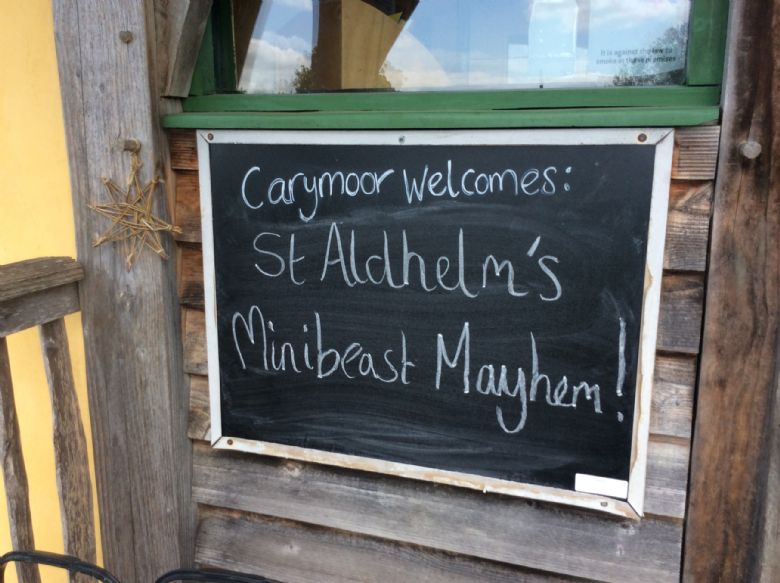 It is against the law to
smoke in these premises
Carymoor Welcomes:
St Aldhelm's
Minibeast Mayhem!